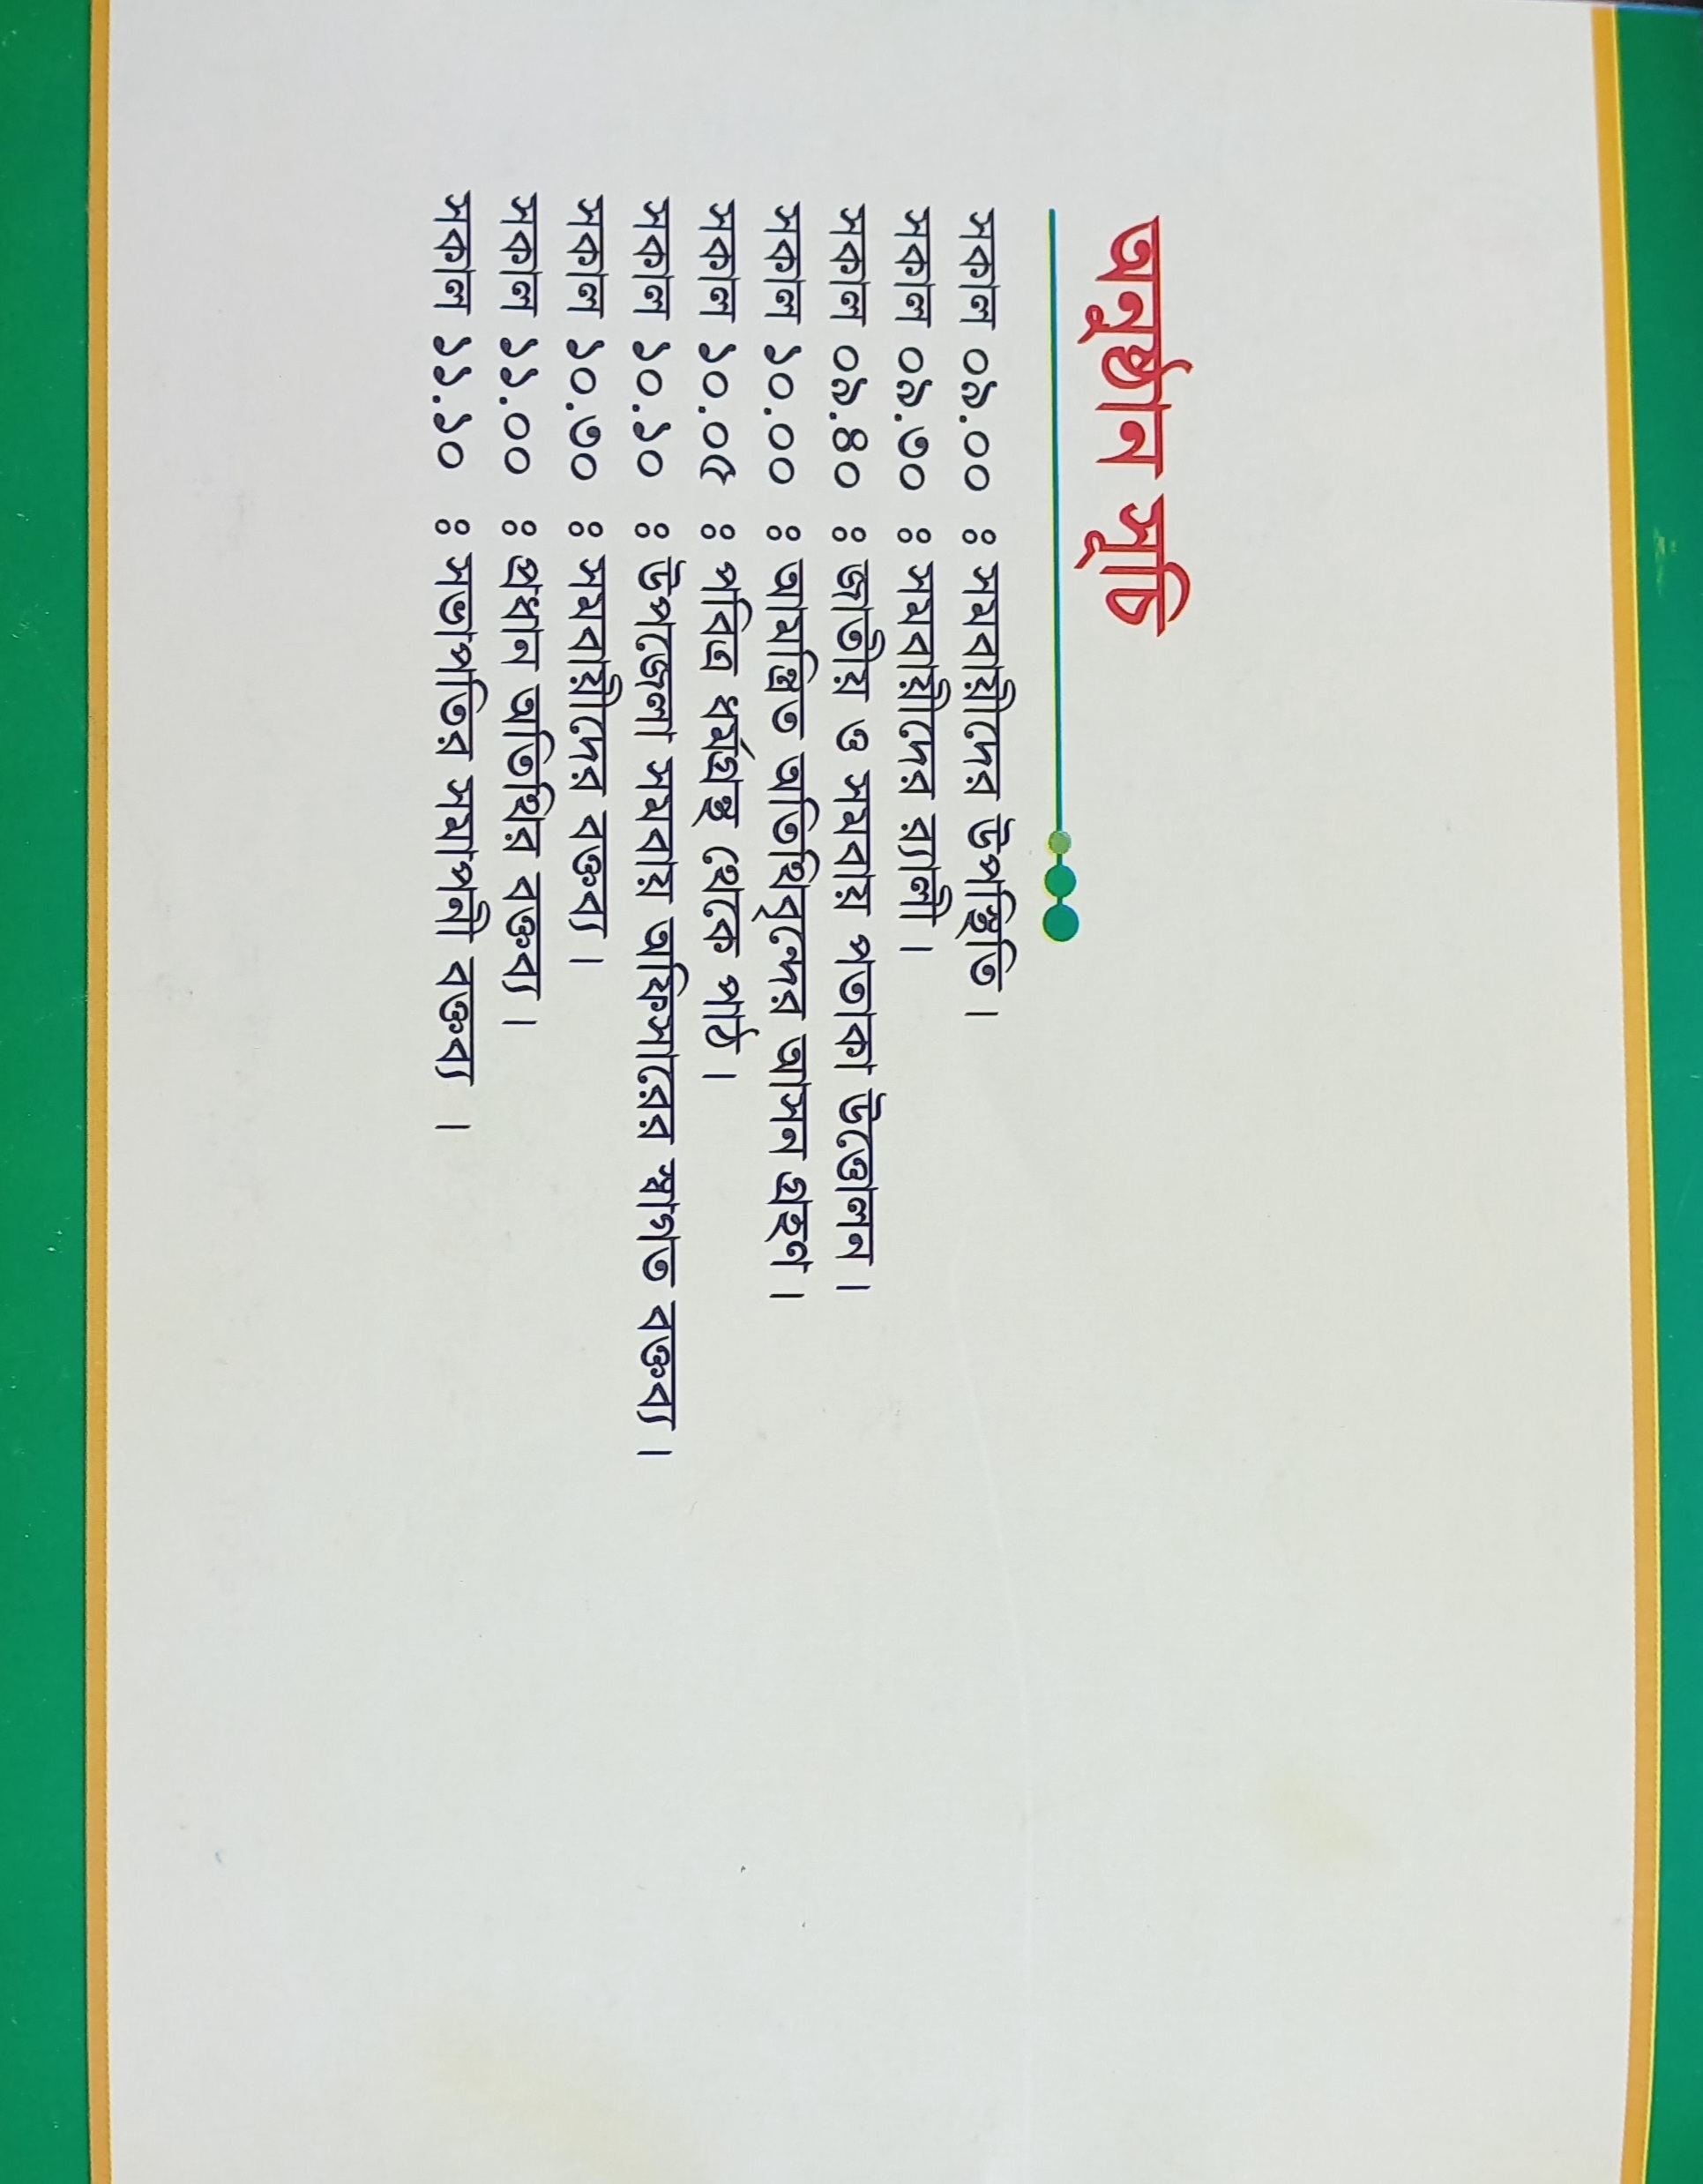 অনুষ্ঠান সূচি
সকাল ০৯.০০ ঃ সমবায়ীদের উপস্থিতি।
সকাল ০৯.৩০ ঃ সমবায়ীদের র‍্যালী।
সকাল ০৯.৪০ ঃ জাতীয় ও সমবায় পতাকা উত্তোলন।
সকাল ১০.০০ ঃ আমন্ত্রিত অতিথিবৃন্দের আসন গ্রহণ।
সকাল ১০.০৫ ঃ পবিত্র ধর্মগ্রন্থ থেকে পাঠ।
সকাল ১০.১০ ঃ উপজেলা সমবায় অফিসারের স্বাগত বক্তব্য।
সকাল ১০.৩০ ঃ সমবায়ীদের বক্তব্য।
সকাল ১১.০০ ঃ প্রধান অতিথির বক্তব্য।
সকাল ১১.১০ ঃ সভাপতির সমাপনী বক্তব্য ।